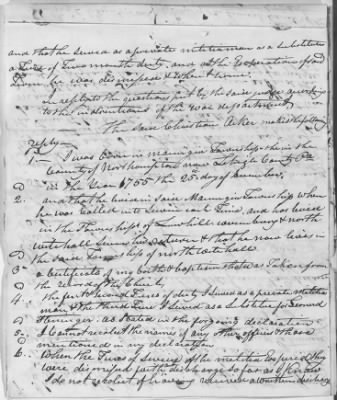 and that he served as a private militia man as a Substitute
a Tour of Two month duty and at the Expiration of said
he was dismissed & went home.
in reply to the questions put by the said Judge according
to the instructions of the War department
The said Christian Aker makes the following
reply—
1— I was born in Township then in the
County of Northampton now Lehigh County Pa
in the Year 1755 the 25 day of December.
2. and that he lived in said Township when
he was Called into Service each Time, and has lived
in the Townships of Lowhill and north
whitehall Since the & that he now lives in
the said Township of north whitehall
3. a Certificate of my birth & baptism that was Taken from
the records of the Church,
4. the first & second Tours of duty I served as a private militia
man & the third Time I served as a Substitute for
as Stated in the foregoing declaration
5. I Cannot recolect the names of any other officers & those
mentioned in my declaration
6. When the Times of Service of the militia has expired they
were dismissed with discharge so far as I know
I do not recolect of having received a written discharge